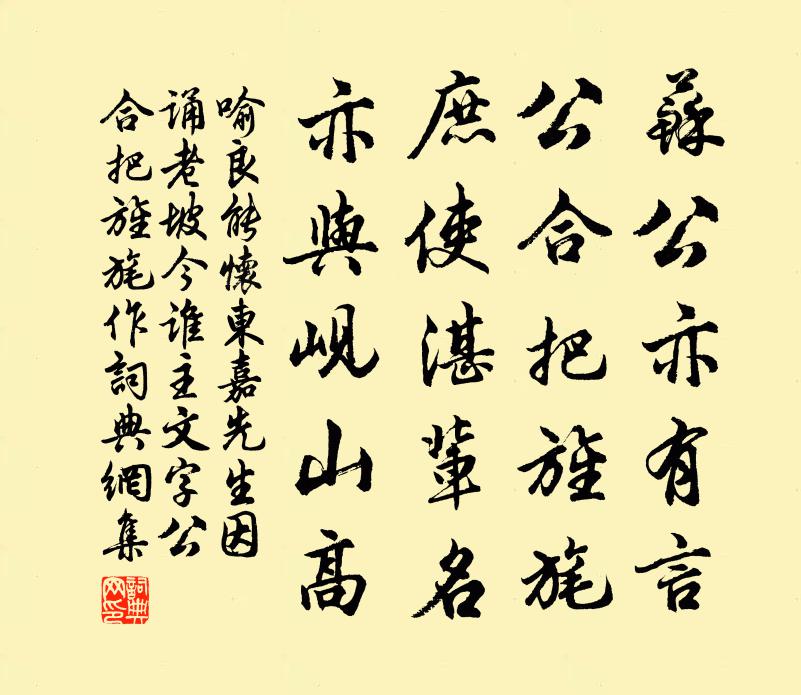 蘇公亦有言
公合把旌旄
庶使湛輩名
亦與峴山高
喻良能懷東嘉先生因
誦老坡今誰主文字公
合把旌旄作詞典網集
詞典網印